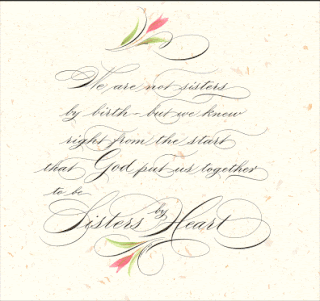 We are not sisters
by birth - but we knew
right from the start
that God put us together
to be
Sisters by Heart